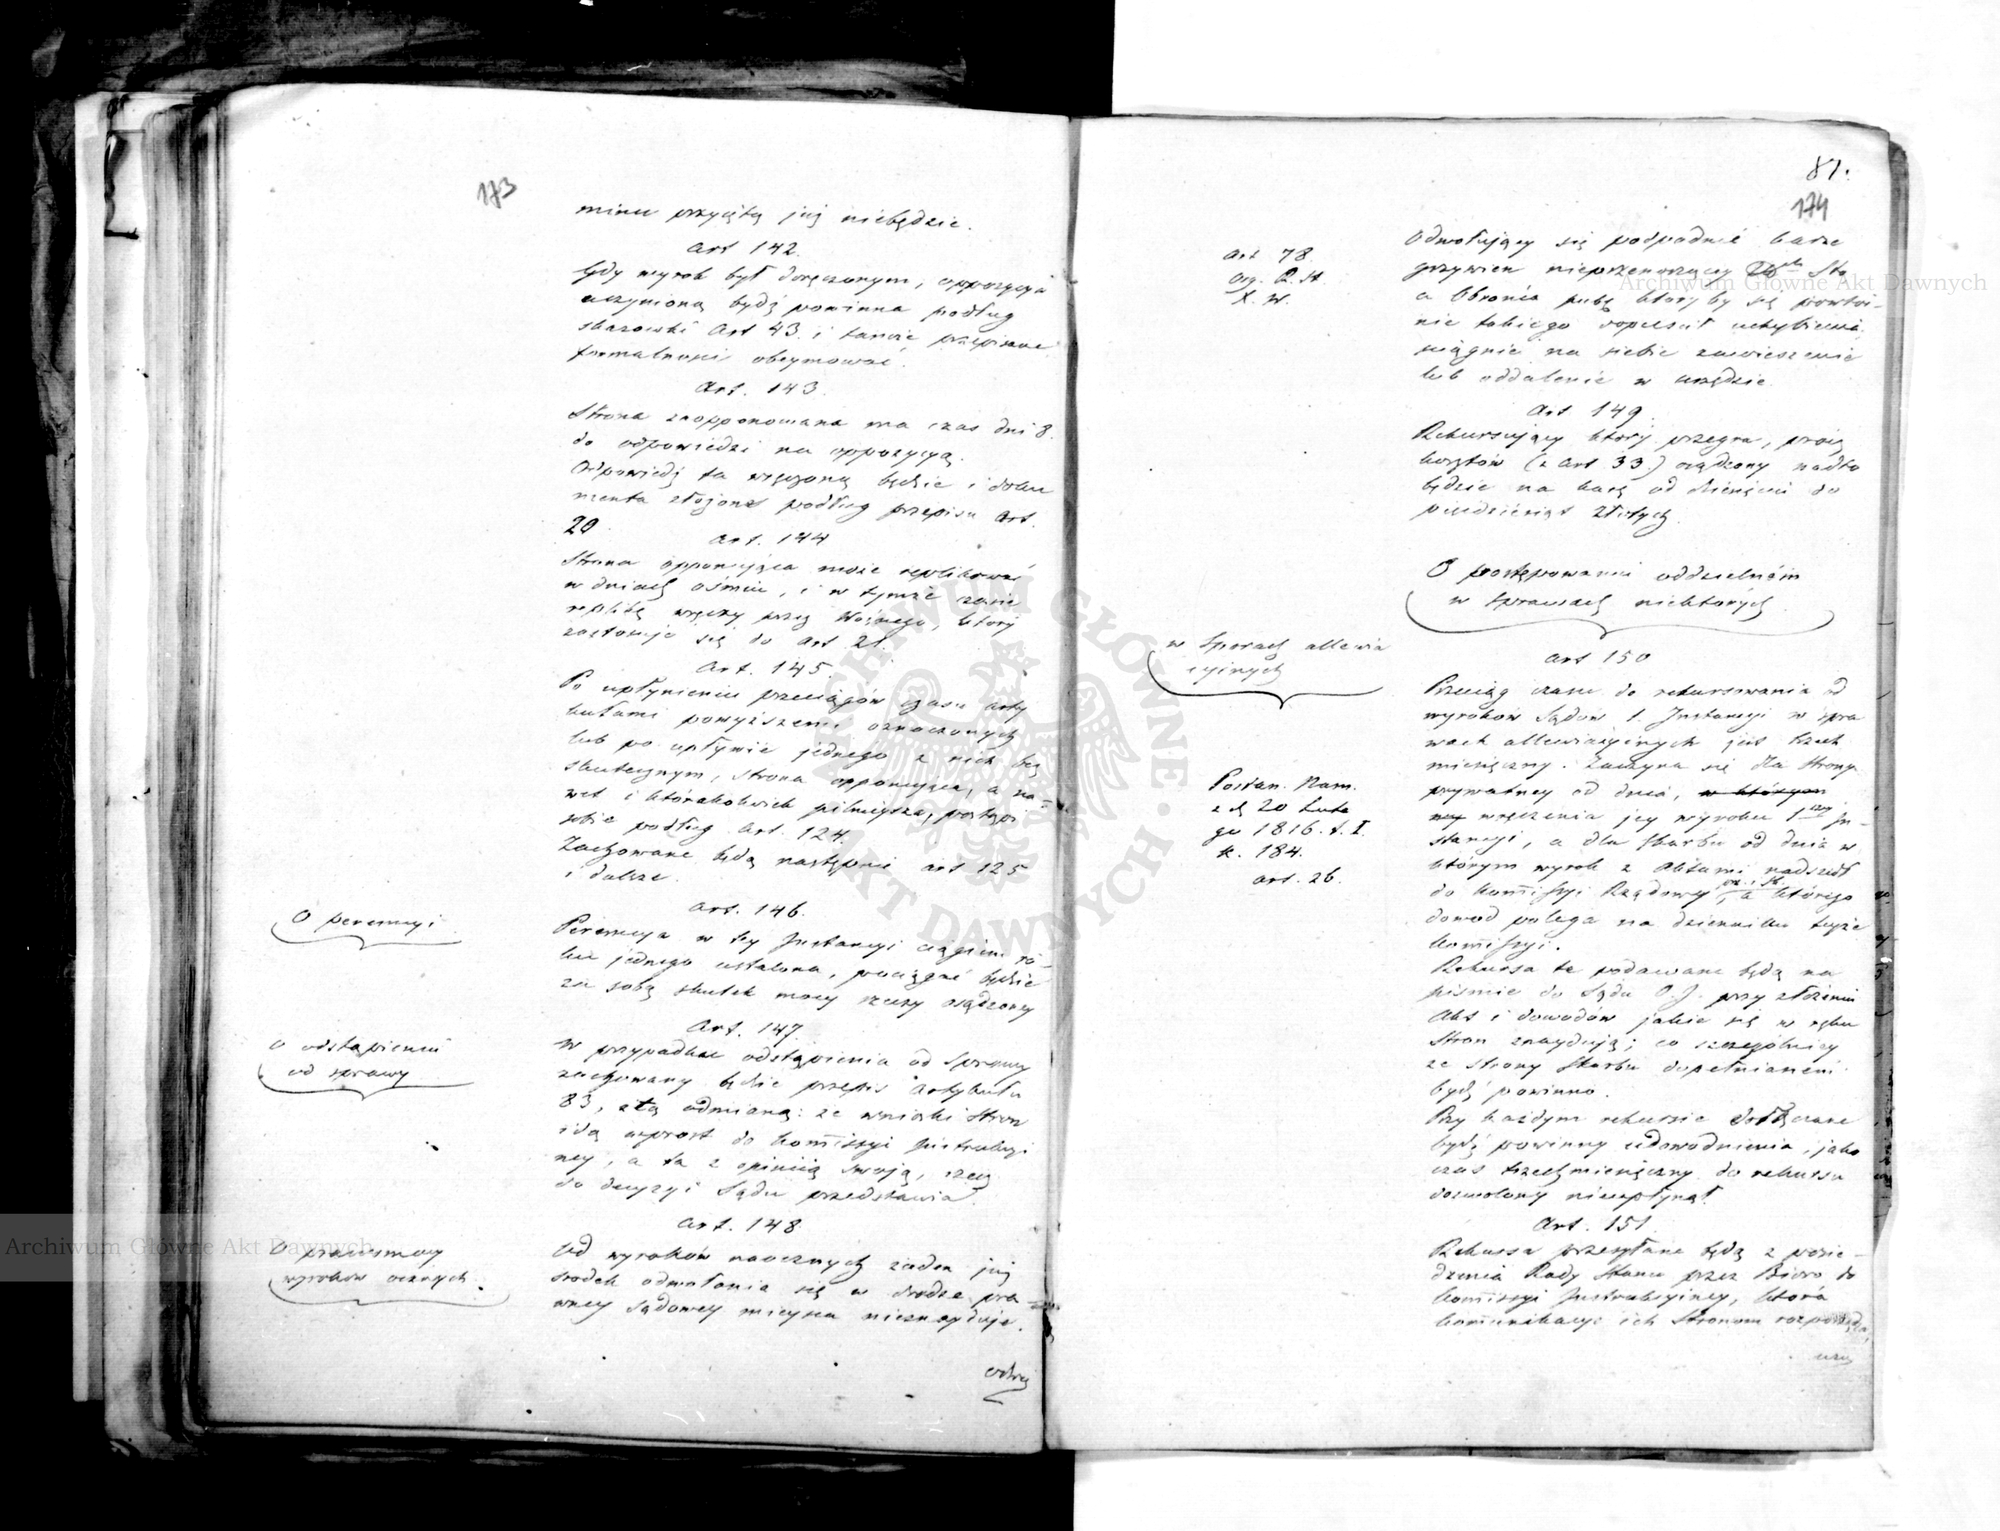 173
minu przyiętą już niebędzie.
Art 142.
Gdy wyrok był doręczonym, oppozycya
uczynioną bydź powinna podług
skazówki Art 43. i tamże przepisane
formalności obeymować.
Art. 143.
Strona zaopponowana ma czas dni 8.
do odpowiedzi na oppozycyą.
Odpowiedź ta wręczoną będzie i doku
menta złożone podług przepisu Art.
20
Art. 144
Strona opponuiąca może replikować
w dniach ośmiu, i w tymże czasie
replikę wręczy przez Woźnego, który
zastosuje się do Art 21.
Art. 145.
Po upłynieniu przeciągów czasu arty
kułami powyższemi oznaczonych
lub po upływie jednego z nich bez
skutecznym, strona opponuiąca, a na=
wet i którakolwiek pilnieysza, postąpi
sobie podług Art. 124.
Zachowane będą następnie art 125
i dalsze.
O perempcyi
Art. 146.
Perempcya w tey Instancyi ciągiem ro=
ku jednego ustalona, pociągnie będzie
za sobą skutek mocy rzeczy osądzoney
O odstąpieniu
od sprawy
Art. 147.
W przypadku odstąpienia od Sprawy
zachowany będzie przepis Artykułu
83, z tą odmianą: że wnioski Stron
idą wprost do Kommissyi Instrukcyi
ney, a ta z opiniią swoją, rzecz
do decyzyi Sądu przedstawia.
O prawomocy
wyroków ocznych.
Art. 148.
Od wyroków naocznych żaden już
środek odwołania się w drodze pra
wney sądowey mieysca nieznayduje.
87.
174
Art 78.
Org. R. St.
X. W.
Odwołujący się podpadnie karze
grzywien nieprzenoszącey Sto
a Obrońca publ. któryby się powtór=
nie takiego dopuścił uchybienia,
ściągnie na siebie zawieszenie
lub oddalenie w urzędzie.
Art 149.
Rekursujący który przegra, prócz
kosztów (z Art 33.) osądzony nadto
będzie na karę od dziesięciu do
pięćdziesiąt Złotych.
O postępowaniu oddzielném
w sprawach niektórych
w Sporach allewia
cyinych
Art 150
Przeciąg czasu do rekursowania od
wyroków Sądów 1. Instancyi w spra
wach allewiacyinych jest trzech
miesięczny. Zaczyna się dla Strony
prywatney od dnia, w którym
wręczenia jey wyroku 1szey In=
stancyi, a dla Skarbu od dnia w
którym wyrok z Aktami nadszedł
do Kommissyi Rządowey prz. i Sk., a którego
dowód polega na dzienniku teyże
Kommissyi.
Postan. Nam.
z d. 20 Lute
go 1816. t. I.
k. 184.
art. 26.
Rekursa te podawane będą na
piśmie do Sądu O. I. przy złożeniu
Akt i dowodów jakie się w ręku
Stron znaydują; co szczególniey
ze strony Skarbu dopełnianem
bydź powinno.
Przy każdym rekursie dołączane
bydź powinny udowodnienia, jako
czas trzechmiesięczny do rekursu
dozwolony nieupłynął.
Art. 151.
Rekursa przesyłane będą z posie=
dzenia Rady Stanu przez Bióro do
Kommissyi Instrukcyiney, która
komunikacyę ich Stronom rozporządza,
Archiwum Główne Akt Dawnych
Archiwum Główne Akt Dawnych
ARCHIWUM GŁÓWNE · AKT DAWNYCH ·